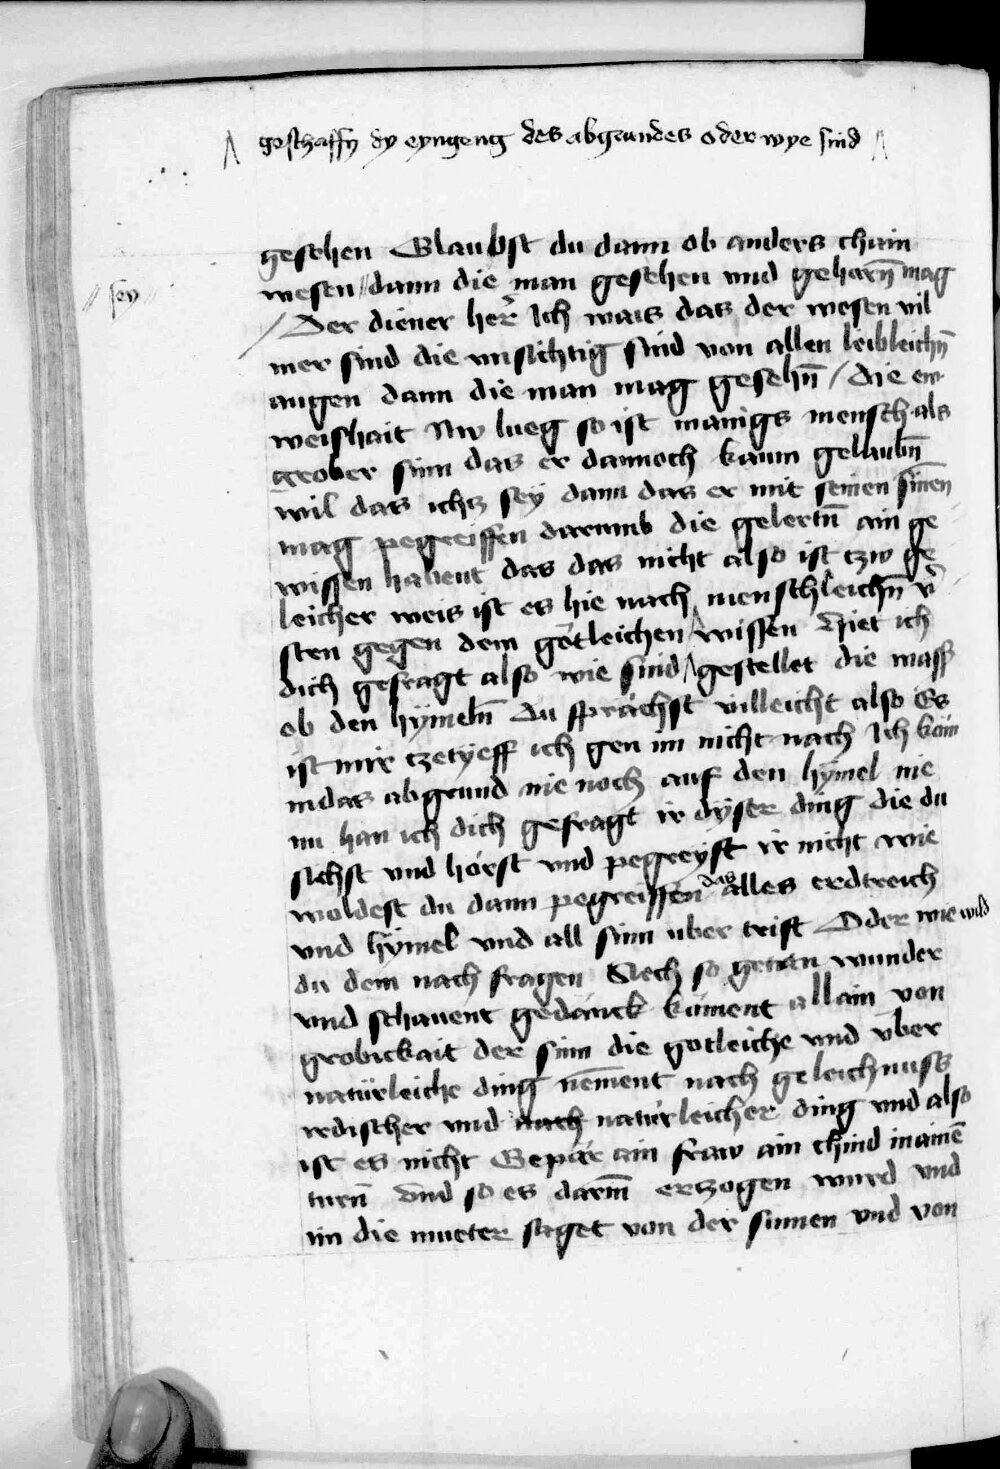 geschaffn dy eyngeng des abgrundes oder wye sind
gesehen Glaubst du dann ob anders chain
wesen // dann die man gesehen vnd gehorn̄ mag
// sey //
/ Der diener her̄ Ich wais das der wesen vil
mer sind die vnsichtig sind von allen leibleichn̄
augen dann die man mag gesehn̄ / die ew
weishait Nw lueg so ist manigs mensch als
grober sinn das er dannoch kaum gelaubn̄
wil das ichs sey dann das er mit seinen sinen
mag pegreiffen darumb die gelertn̄ ain ge
wissen habent das das nicht also ist tzw ge
leicher weis ist es hie nach menschleichn̄ v̄
sten gegen dem götleichen wissen Hiet ich
dich gefragt also wie sind gestellet die wass̄
ob den hymeln̄ Du sprächst villeicht also Es
ist mir tzetyeff ich gen im nicht nach Ich kom
in das abgrund nie noch auf den hymel nie
nu han ich dich gefragt ir dyser ding die du
sichst vnd hörst vnd pegreyft ir nicht wie
woldest du dann pegreiffen das alles erdtreich
vnd hymel vnd all sinn vber trift Oder wie wild
du dem nach fragen Sech so getan wunder
vnd schauent gedänck kument allain von
grobickait der sinn die gotleiche vnd vber
natürleiche ding nement nach geleichnuss
irdischer vnd nach natürleicher ding vnd also
ist es nicht Gepär ain fraw ain chind in ainē
turn̄ vnd so es darin̄ ertzogen wurd vnd
im die mueter saget von der sunnen vnd von